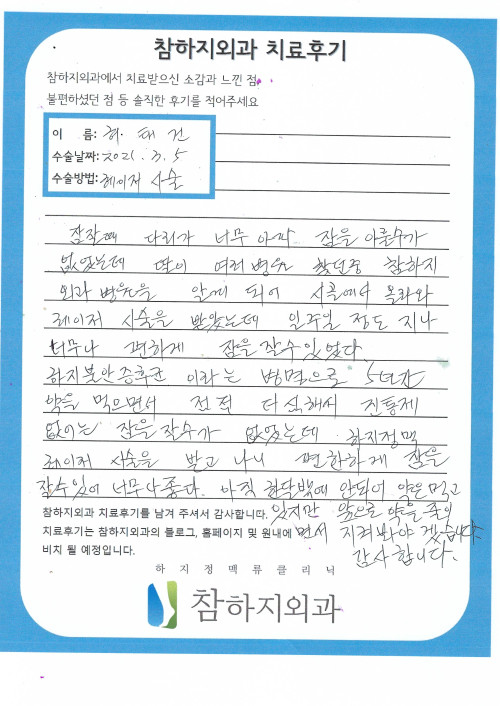 참하지외과 치료후기
참하지외과에서 치료받으신 소감과 느낀 점
불편하셨던 점 등 솔직한 후기를 적어주세요
이 름: 허 태 건
수술날짜: 2021. 3. 5
수술방법: 레이저 사술
잠잘때 다리가 너무 아파 잠을 이룰수가
없었는데 딸이 여러병원 찾던중 참하지
외과 병원을 알게 되어 시골에서 올라와
레이저 사술을 받았는데 일주일 정도 지나
너무나 편하게 잠을 잘수있었다.
하지불안증후군 이라는 병명으로 5년간
약을 먹으면서 점점 더 심해서 진통제
없이는 잠을잘수가 없었는데 하지정맥
레이저 사술을 받고 나니 편한하게 잠을
잘수있어 너무나좋다. 아직 한달밖에 안되어 약은 먹고
참하지외과 치료후기를 남겨 주셔서 감사합니다. 있지만 앞으로 약을 줄이
치료후기는 참하지외과의 블로그, 홈페이지 및 원내에 면서 지켜봐야 겠습니다.
비치 될 예정입니다. 감사합니다.
하지정맥류클리닉
참하지외과